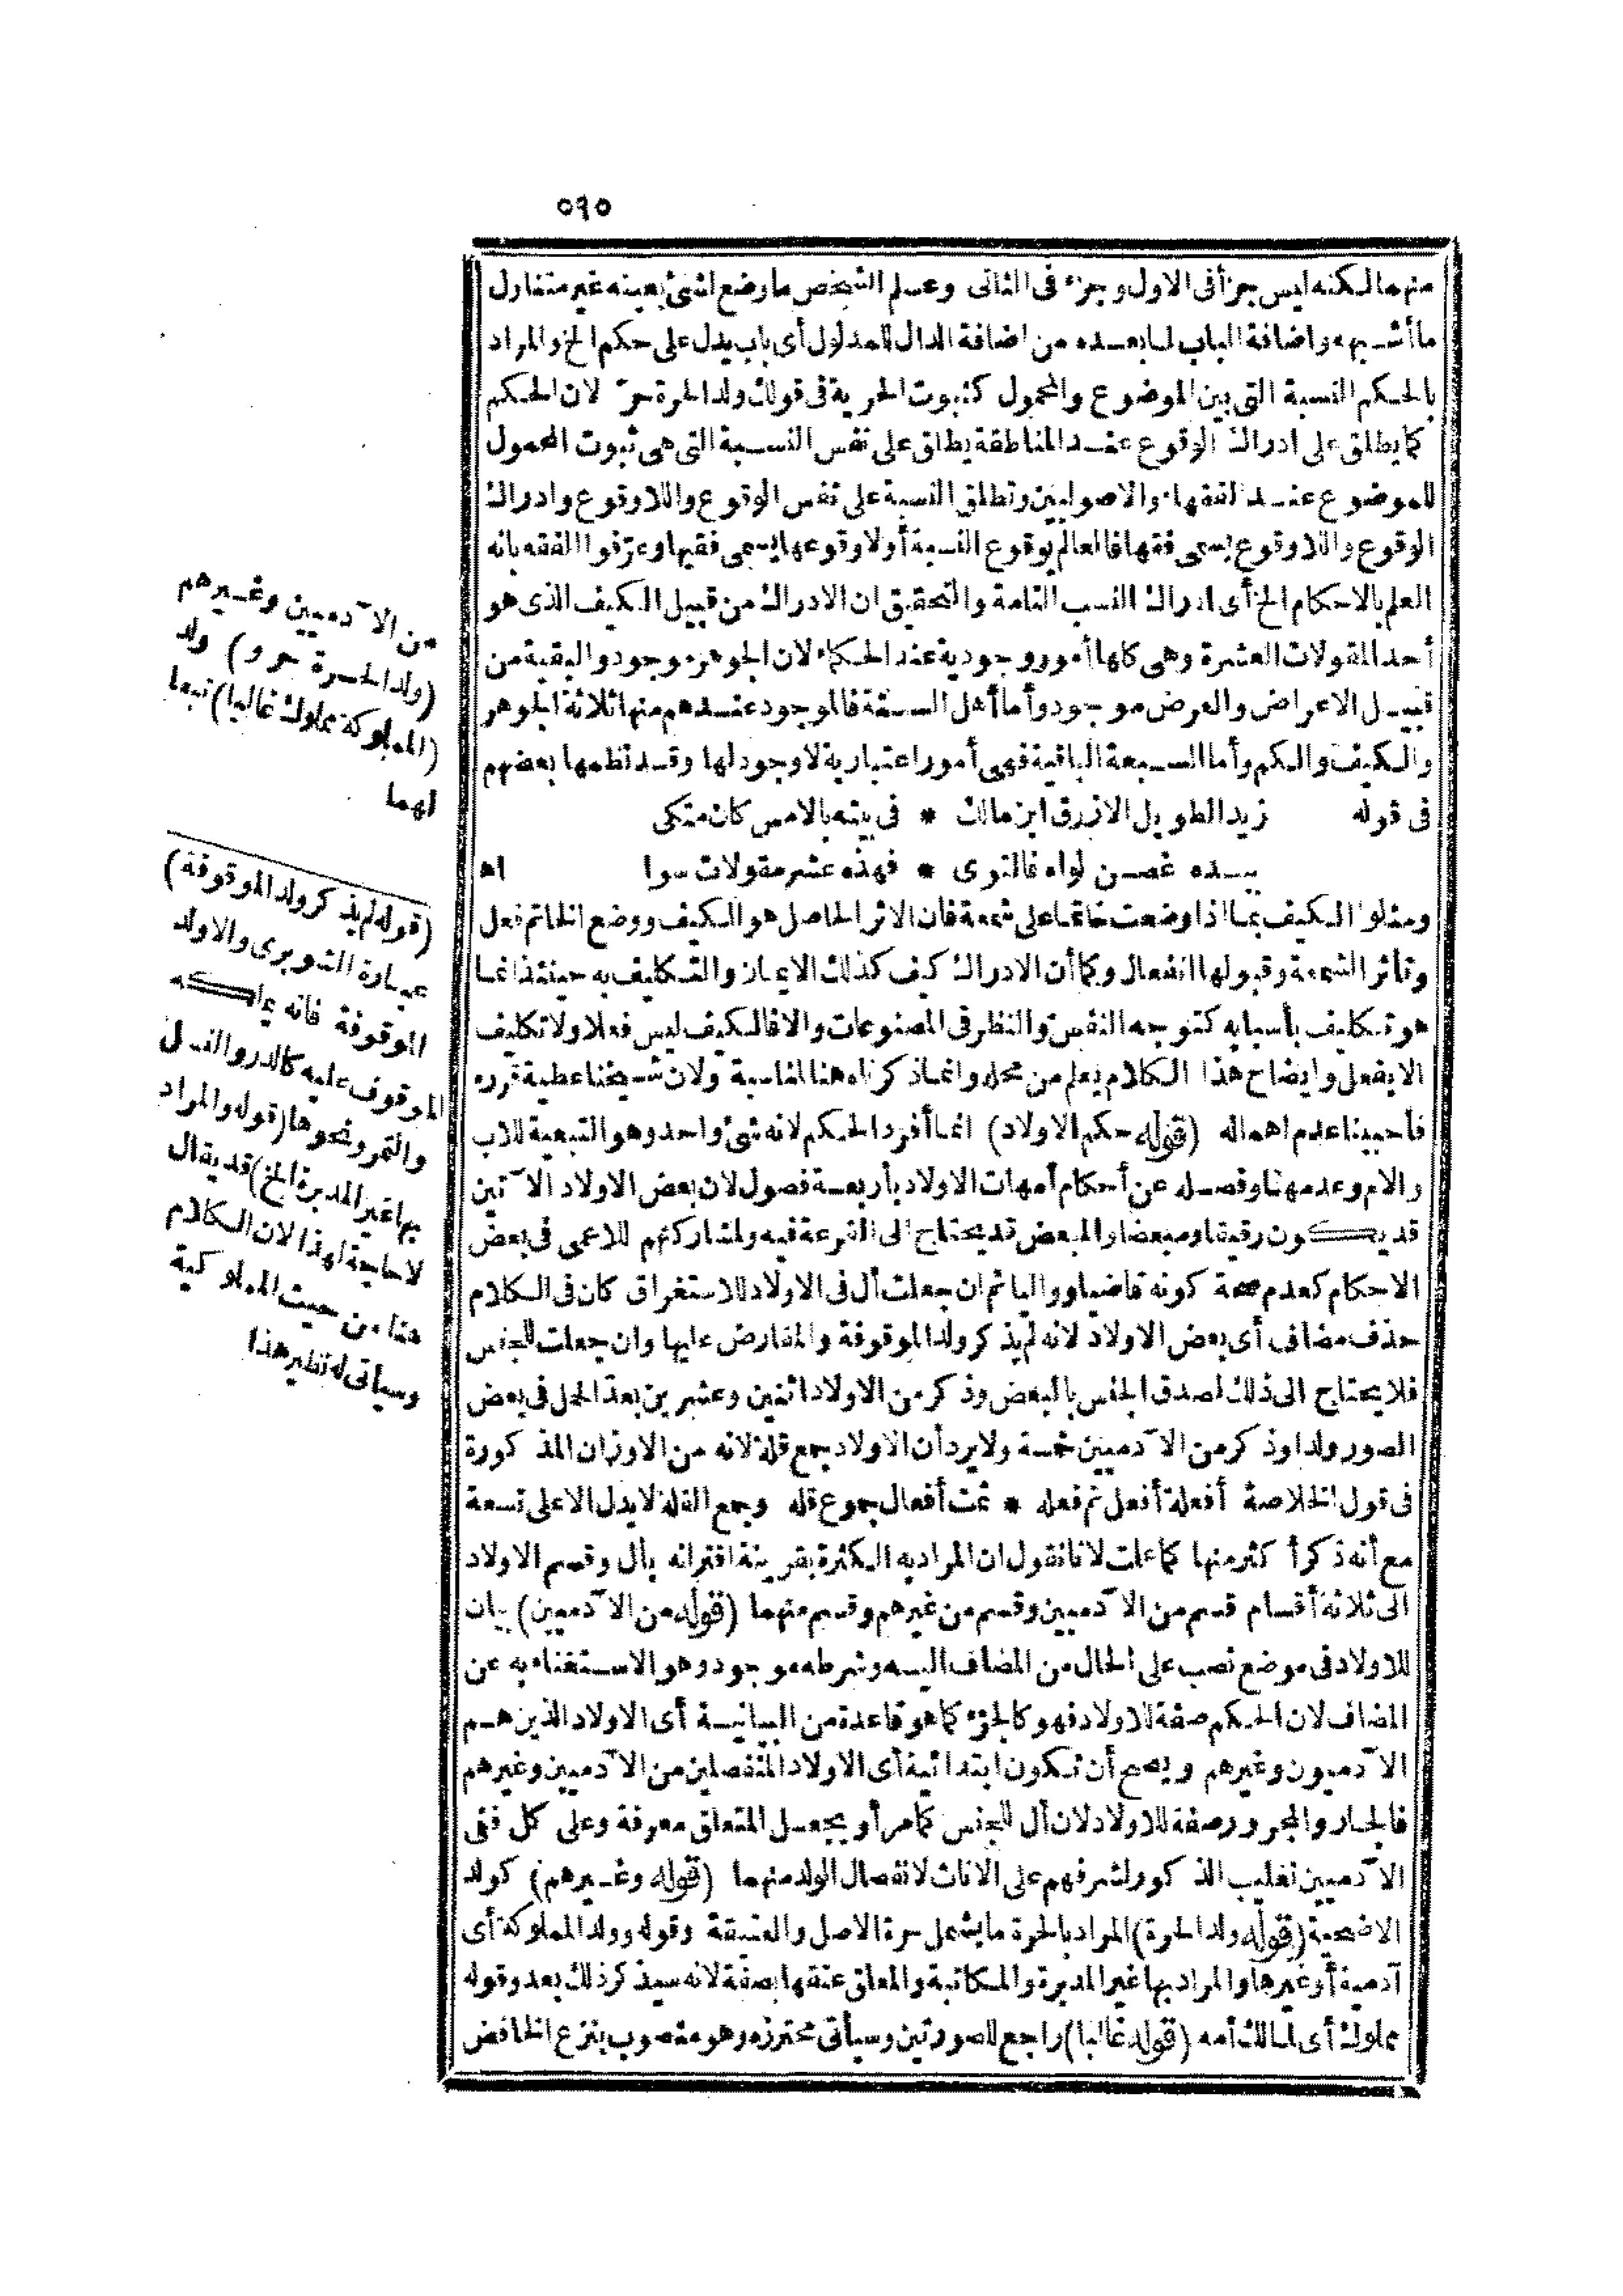 ٥٩٥
منهما لكنه ليس جزأ فى الاول وجزء فى الثانى وعلم الشخص ما وضع لشئ بعينه غير متناول
ما أشبهه واضافة الباب لما بعده من اضافة الدال للمدلول أى باب يدل على حكم الخ والمراد
بالحكم النسبة التى بين الموضوع والمحمول كثبوت الحرية فى قولك ولد الحرة حرّ لان الحكم
كما يطلق على ادراك الوقوع عند المناطقة يطلق على نفس النسبة التى هى ثبوت المحمول
للموضوع عند الفقهاء والاصوليين وتطلق النسبة على نفس الوقوع واللاوقوع وادراك
الوقوع واللاوقوع يسمى فقها فالعالم بوقوع النسبة أولا وقوعها يسمى فقيها وعرّفوا الفقه بانه
العلم بالاحكام الخ أى ادراك النسب التامة والتحقيق ان الادراك من قبيل الكيف الذى هو
أحد المقولات العشرة وهى كلها أمور وجودية عند الحكماء لان الجوهر موجود والبقية من
قبيل الاعراض والعرض موجود وأما أهل السنة فالموجود عندهم منها ثلاثة الجوهر
والكيف والكم وأما السبعة الباقية فهى أمور اعتبارية لا وجود لها وقد نظمها بعضهم
فى قوله زيد الطويل الازرق ابن مالك * فى بيته بالامس كان متكى
بيده غصن لواه فالتوى * فهذه عشر مقولات سوا اه
ومثلوا الكيف بما اذا وضعت خاتما على شمعة فان الاثر الحاصل هو الكيف ووضع الخاتم فعل
وتأثر الشمعة وقبولها انفعال وكما أن الادراك كيف كذلك الايمان والتكليف به حينئذ انما
هو تكليف بأسبابه كتوجه النفس والنظر فى المصنوعات والا فالكيف ليس فعلا ولا تكليف
الا بفعل وايضاح هذا الكلام يعلم من محله وانما ذكرناه هنا لمناسبة ولان شيخنا عطية قرره
فأحببنا عدم اهماله (قوله حكم الاولاد) انما أفرد الحكم لانه شئ واحد وهو التبعية للاب
والام وعدمهما وفصله عن أحكام أمهات الاولاد بأربعة فصول لان بعض الاولاد الآتين
قد يكون رقيقا ومبعضا والمبعض قد يحتاج الى القرعة فيه ولمشاركتهم للاعمى فى بعض
الاحكام كعدم صحة كونه قاضيا وواليا ثم ان جعلت أل فى الاولاد للاستغراق كان فى الكلام
حذف مضاف أى بعض الاولاد لانه لم يذكر ولد الموقوفة والمقارض عليها وان جعلت للجنس
فلا يحتاج الى ذلك لصدق الجنس بالبعض وذكر من الاولاد اثنين وعشرين بعدّ الحمل فى بعض
الصور ولدا وذكر من الآدميين خمسة ولا يرد أن الاولاد جمع قلة لانه من الاوزان المذكورة
فى قول الخلاصة أفعلة أفعل ثم فعله * ثمت أفعال جموع قله وجمع القلة لا يدل الا على تسعة
مع أنه ذكر أكثر منها كما علمت لانا نقول ان المراد به الكثرة بقرينة اقترانه بأل وقسم الاولاد
الى ثلاثة أقسام قسم من الآدميين وقسم من غيرهم وقسم منهما (قوله من الآدميين) بيان
للاولاد فى موضع نصب على الحال من المضاف اليه وشرطه موجود وهو الاستغناء به عن
المضاف لان الحكم صفة للاولاد فهو كالجزء كما هو قاعدة من البيانية أى الاولاد الذين هم
الآدميون وغيرهم ويصح أن تكون ابتدائية أى الاولاد المنفصلين من الآدميين وغيرهم
فالجار والمجرور صفة للاولاد لان أل للجنس كما مر أو يجعل المتعلق معرفة وعلى كل ففى
الآدميين تغليب الذكور لشرفهم على الاناث لانفصال الولد منهما (قوله وغيرهم) كولد
الاضحية (قوله ولد الحرة) المراد بالحرة ما يشمل حرة الاصل والعتيقة وقوله وولد المملوكة أى
آدمية أو غيرها والمراد بها غير المدبرة والمكاتبة والمعلق عتقها بصفة لانه سيذكر ذلك بعد وقوله
مملوك أى لمالك أمه (قوله غالبا) راجع للصورتين وسيأتى محترزه وهو منصوب بنزع الخافض
من الآدميين وغيرهم
(ولد الحرة حر و) ولد
(المملوكة مملوك غالبا) تبعا
لهما
(قوله لم يذكر ولد الموقوفة)
عبارة الشوبرى والاولاد
الموقوفة فانه يملكه
الموقوف عليه كالدر والنسل
والثمر ونحوها (قوله والمراد
بها غير المدبرة الخ) قد يقال
لا حاجة لهذا لان الكلام
هنا من حيث المملوكية
وسيأتى له نظير هذا